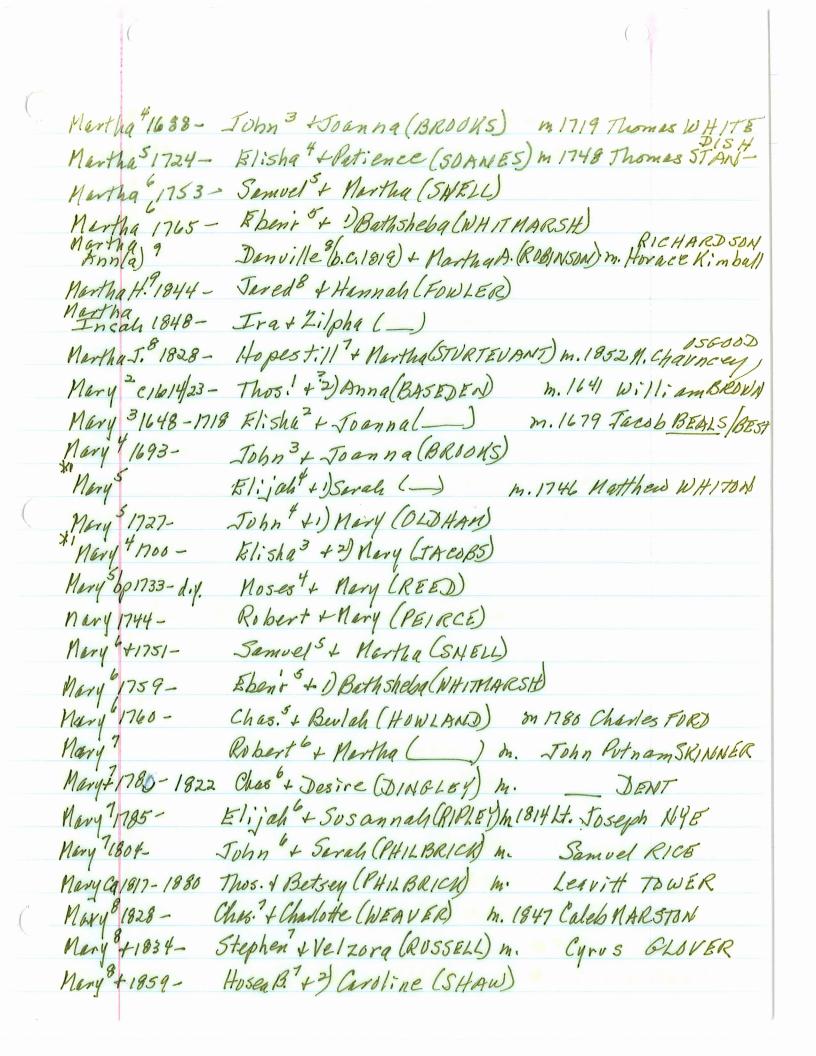 Martha⁴ 1688- John³ + Joanna (BROOKS) m 1719 Thomas WHITE
Martha⁵ 1724- Elisha⁴ + Patience (SOANES) m 1748 Thomas STAN-DISH
Martha⁶ 1753- Samuel⁵ + Martha (SNELL)
Martha⁶ 1765- Eben'r⁵ + 1) Bathsheba (WHITMARSH)
Martha Ann(a)⁹ Danville⁸ (b.c. 1819) + Martha A. (ROBINSON) m. Horace Kimball RICHARDSON
Martha H.⁹ 1844- Jared⁸ + Hannah (FOWLER)
Martha Incah 1848- Ira + Zilpha (__)
Martha J.⁸ 1828- Hopestill⁷ + Martha (STURTEVANT) m. 1852 N. Chauncey OSGOOD
Mary² c1614/23- Thos.¹ + ?2) Anna (BASEDEN) m. 1641 William BROWN
Mary³ 1648-1718 Elisha² + Joanna (____) m. 1679 Jacob BEALS/BEST
Mary⁴ 1693- John³ + Joanna (BROOKS)
*1 Mary⁵ Elijah⁴ + 1) Sarah (__) m. 1746 Matthew WHITON
Mary⁵ 1727- John⁴ + 1) Mary (OLDHAM)
*1 Mary⁴ 1700- Elisha³ + 2) Mary (JACOBS)
Mary⁵ bp 1733- d.y. Moses⁴ + Mary (REED)
Mary 1744- Robert + Mary (PEIRCE)
Mary⁶ + 1751- Samuel⁵ + Martha (SNELL)
Mary⁶ 1759- Eben'r⁵ + 1) Bathsheba (WHITMARSH)
Mary⁶ 1760- Chas.⁵ + Beulah (HOWLAND) m 1780 Charles FORD
Mary⁷ Robert⁶ + Martha (____) m. John Putnam SKINNER
Mary⁷ + 1780- 1822 Chas⁶ + Desire (DINGLEY) m. ___ DENT
Mary⁷ 1785- Elijah⁶ + Susannah (RIPLEY) m 1814 Lt. Joseph NYE
Mary⁷ 1804- John⁶ + Sarah (PHILBRICK) m. Samuel RICE
Mary Ca 1817- 1880 Thos. + Betsey (PHILBRICK) m. Leavitt TOWER
Mary⁸ 1828- Chas.⁷ + Charlotte (WEAVER) m. 1847 Caleb MARSTON
Mary⁸ + 1834- Stephen⁷ + Velzora (RUSSELL) m. Cyrus GLOVER
Mary⁸ + 1859- Hosea B.⁷ + 2) Caroline (SHAW)